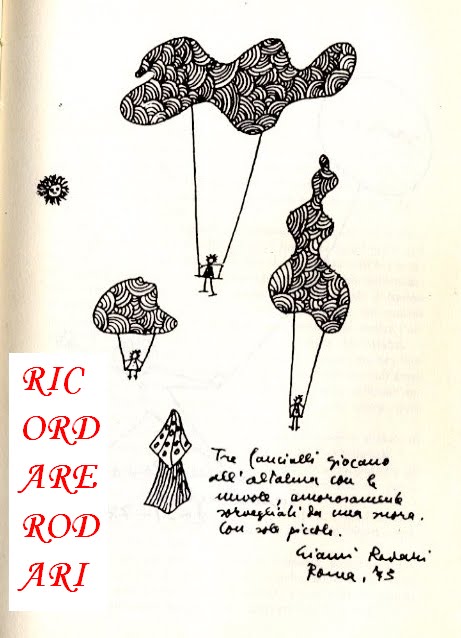 RIC
ORD
ARE
ROD
ARI
Tre fanciulli giocano
all'altalena con le
nuvole, amorosamente
sorvegliati da una suora.
Con sole piccolo.
Gianni Rodari
Roma, 75